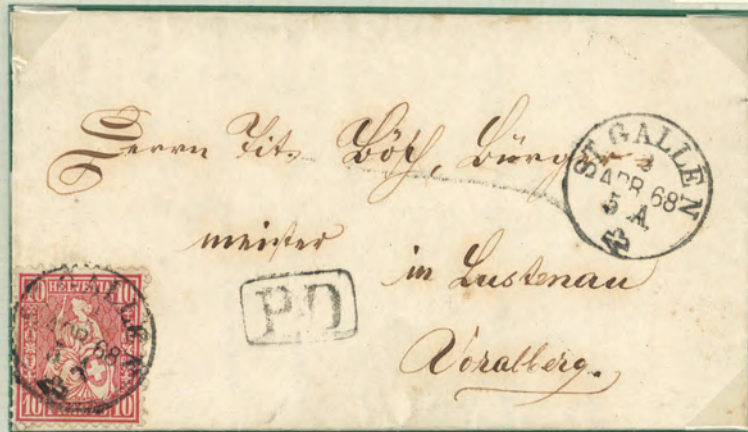 Herrn Tit. Bösch, Bürger-
meister
in Lustenau
Voralberg.
ST. GALLEN
APR 68
5 A
P.D
10 HELVETIA 10
APR 68
10 10